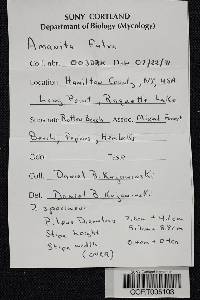 SUNY CORTLAND
Department of Biology (Mycology)
Amanita Fulva
Coll. nbr. 003DBK Date 07/22/11
Location: Hamilton County, NY, USA
Long Point, Raquette Lake
Substrate: Rotten Beech Assoc. Mixed Forest
Beech, Populus, Hemlocks
Coll. Daniel B. Kazmierski
Det. Daniel B. Kazmierski
2 specimens
Pileus Diameter
Stipe height
Stipe width
(OVER)